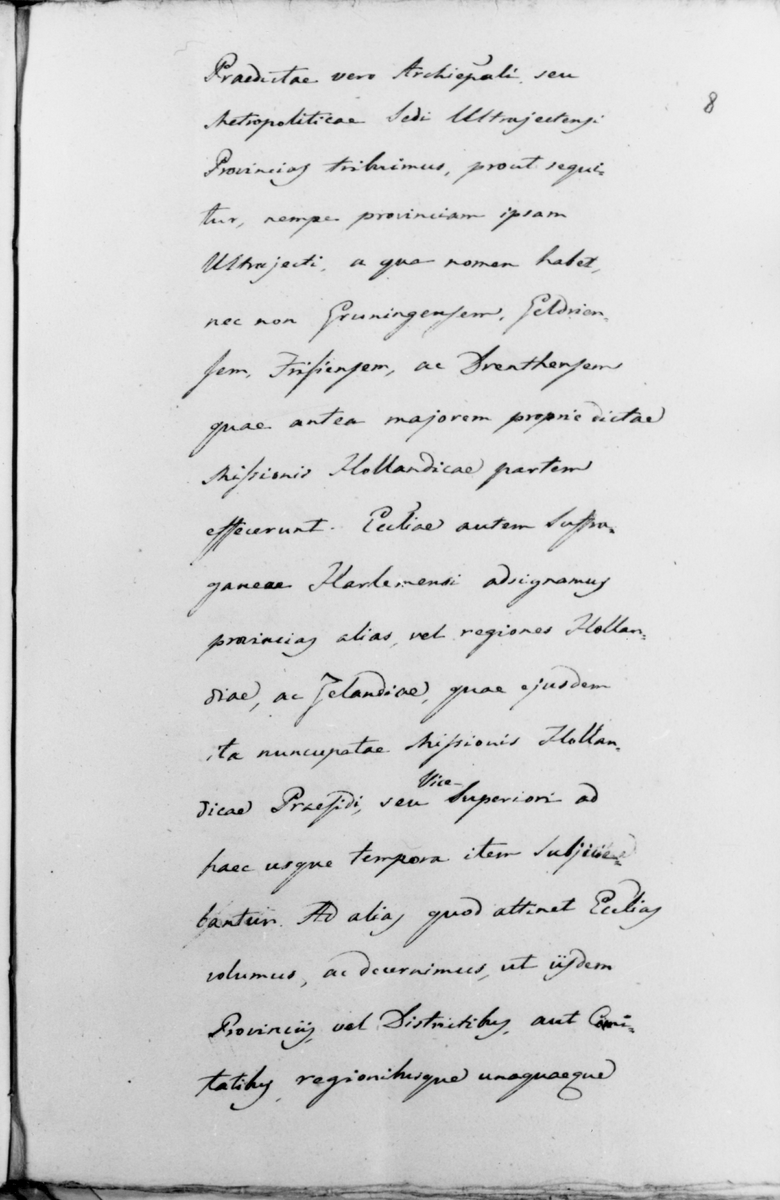 8
Praedictae vero Archiepali seu
Metropoliticae Sedi Ultrajectensi
Provincias tribuimus, prout sequi-
tur, nempe provinciam ipsam
Ultrajecti, a qua nomen habet,
nec non Gruningensem, Geldrien-
sem, Frisiensem, ac Drenthensem
quae antea majorem proprie dictae
Missionis Hollandicae partem
effecerunt. Eccliae autem Suffra-
ganeae Harlemensi adsignamus
provincias alias, vel regiones Hollan-
diae, ac Zelandiae, quae ejusdem
ita nuncupatae Missionis Hollan-
dicae Praesidi, seu Vice-Superiori ad
haec usque tempora item Subjicie-
bantur. Ad alias quod attinet Ecclias
volumus, ac decernimus, ut iisdem
Provinciis, vel Districtibus, aut Comi-
tatibus, regionibusque unaquaeque